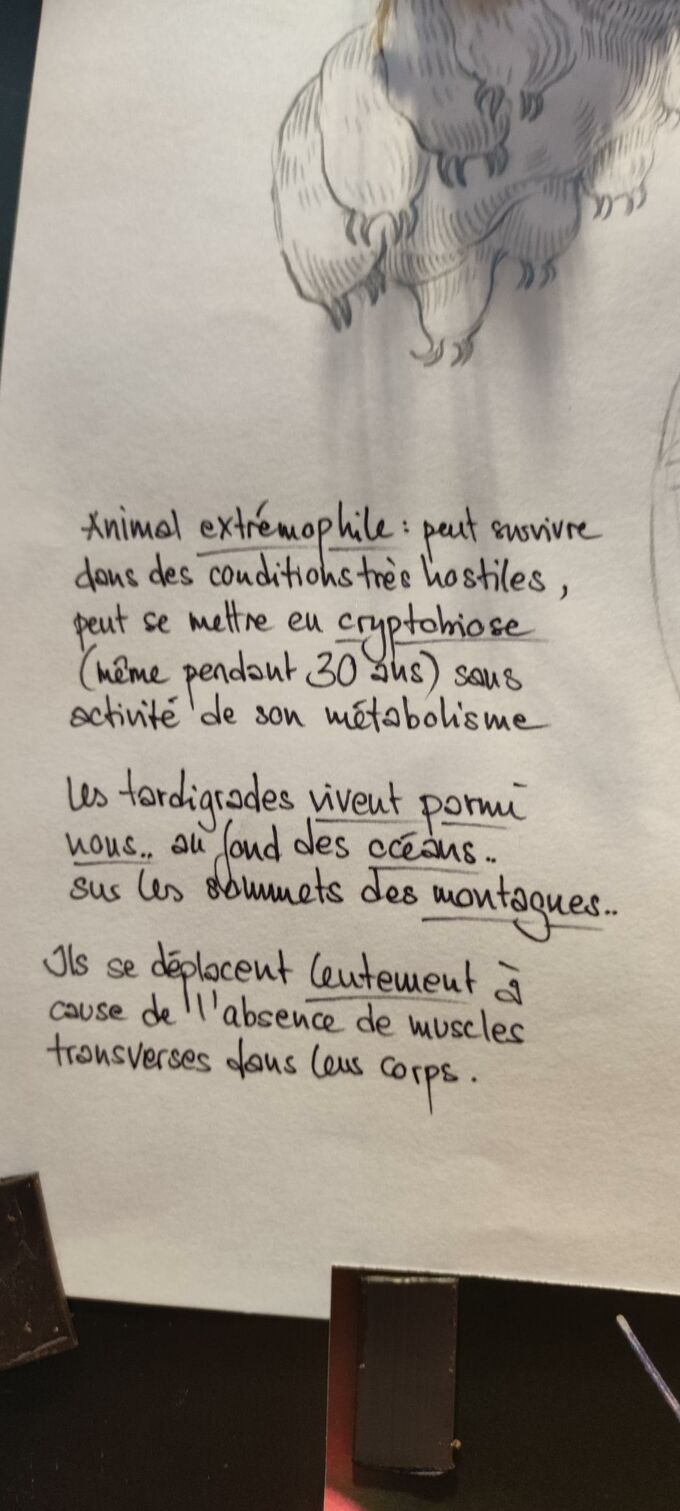 Animal extrémophile : peut survivre
dans des conditions très hostiles,
peut se mettre en cryptobiose
(même pendant 30 ans) sans
activité de son métabolisme
Les tardigrades vivent parmi
nous.. au fond des océans..
sur les sommets des montagnes..
Ils se déplacent lentement à
cause de l'absence de muscles
transverses dans leur corps.